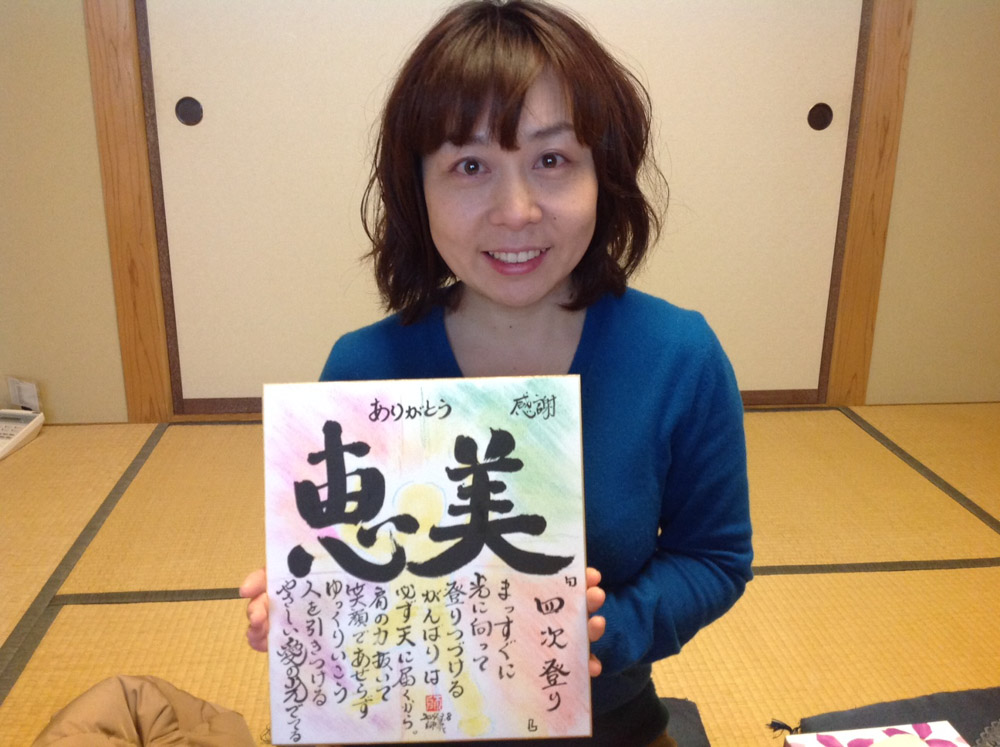 ありがとう
感謝
恵美
『四次登り』
まっすぐに
光に向って
登りつづける
がんばりは
必ず天に届くから。
肩の力抜いて
笑顔であせらず
ゆっくりいこう
人を引きつける
やさしい愛の光でてる